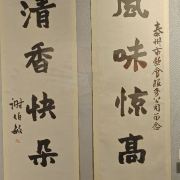 風味惊高
泰州市餐會服务公司留念
清香快朵
谢伯敏